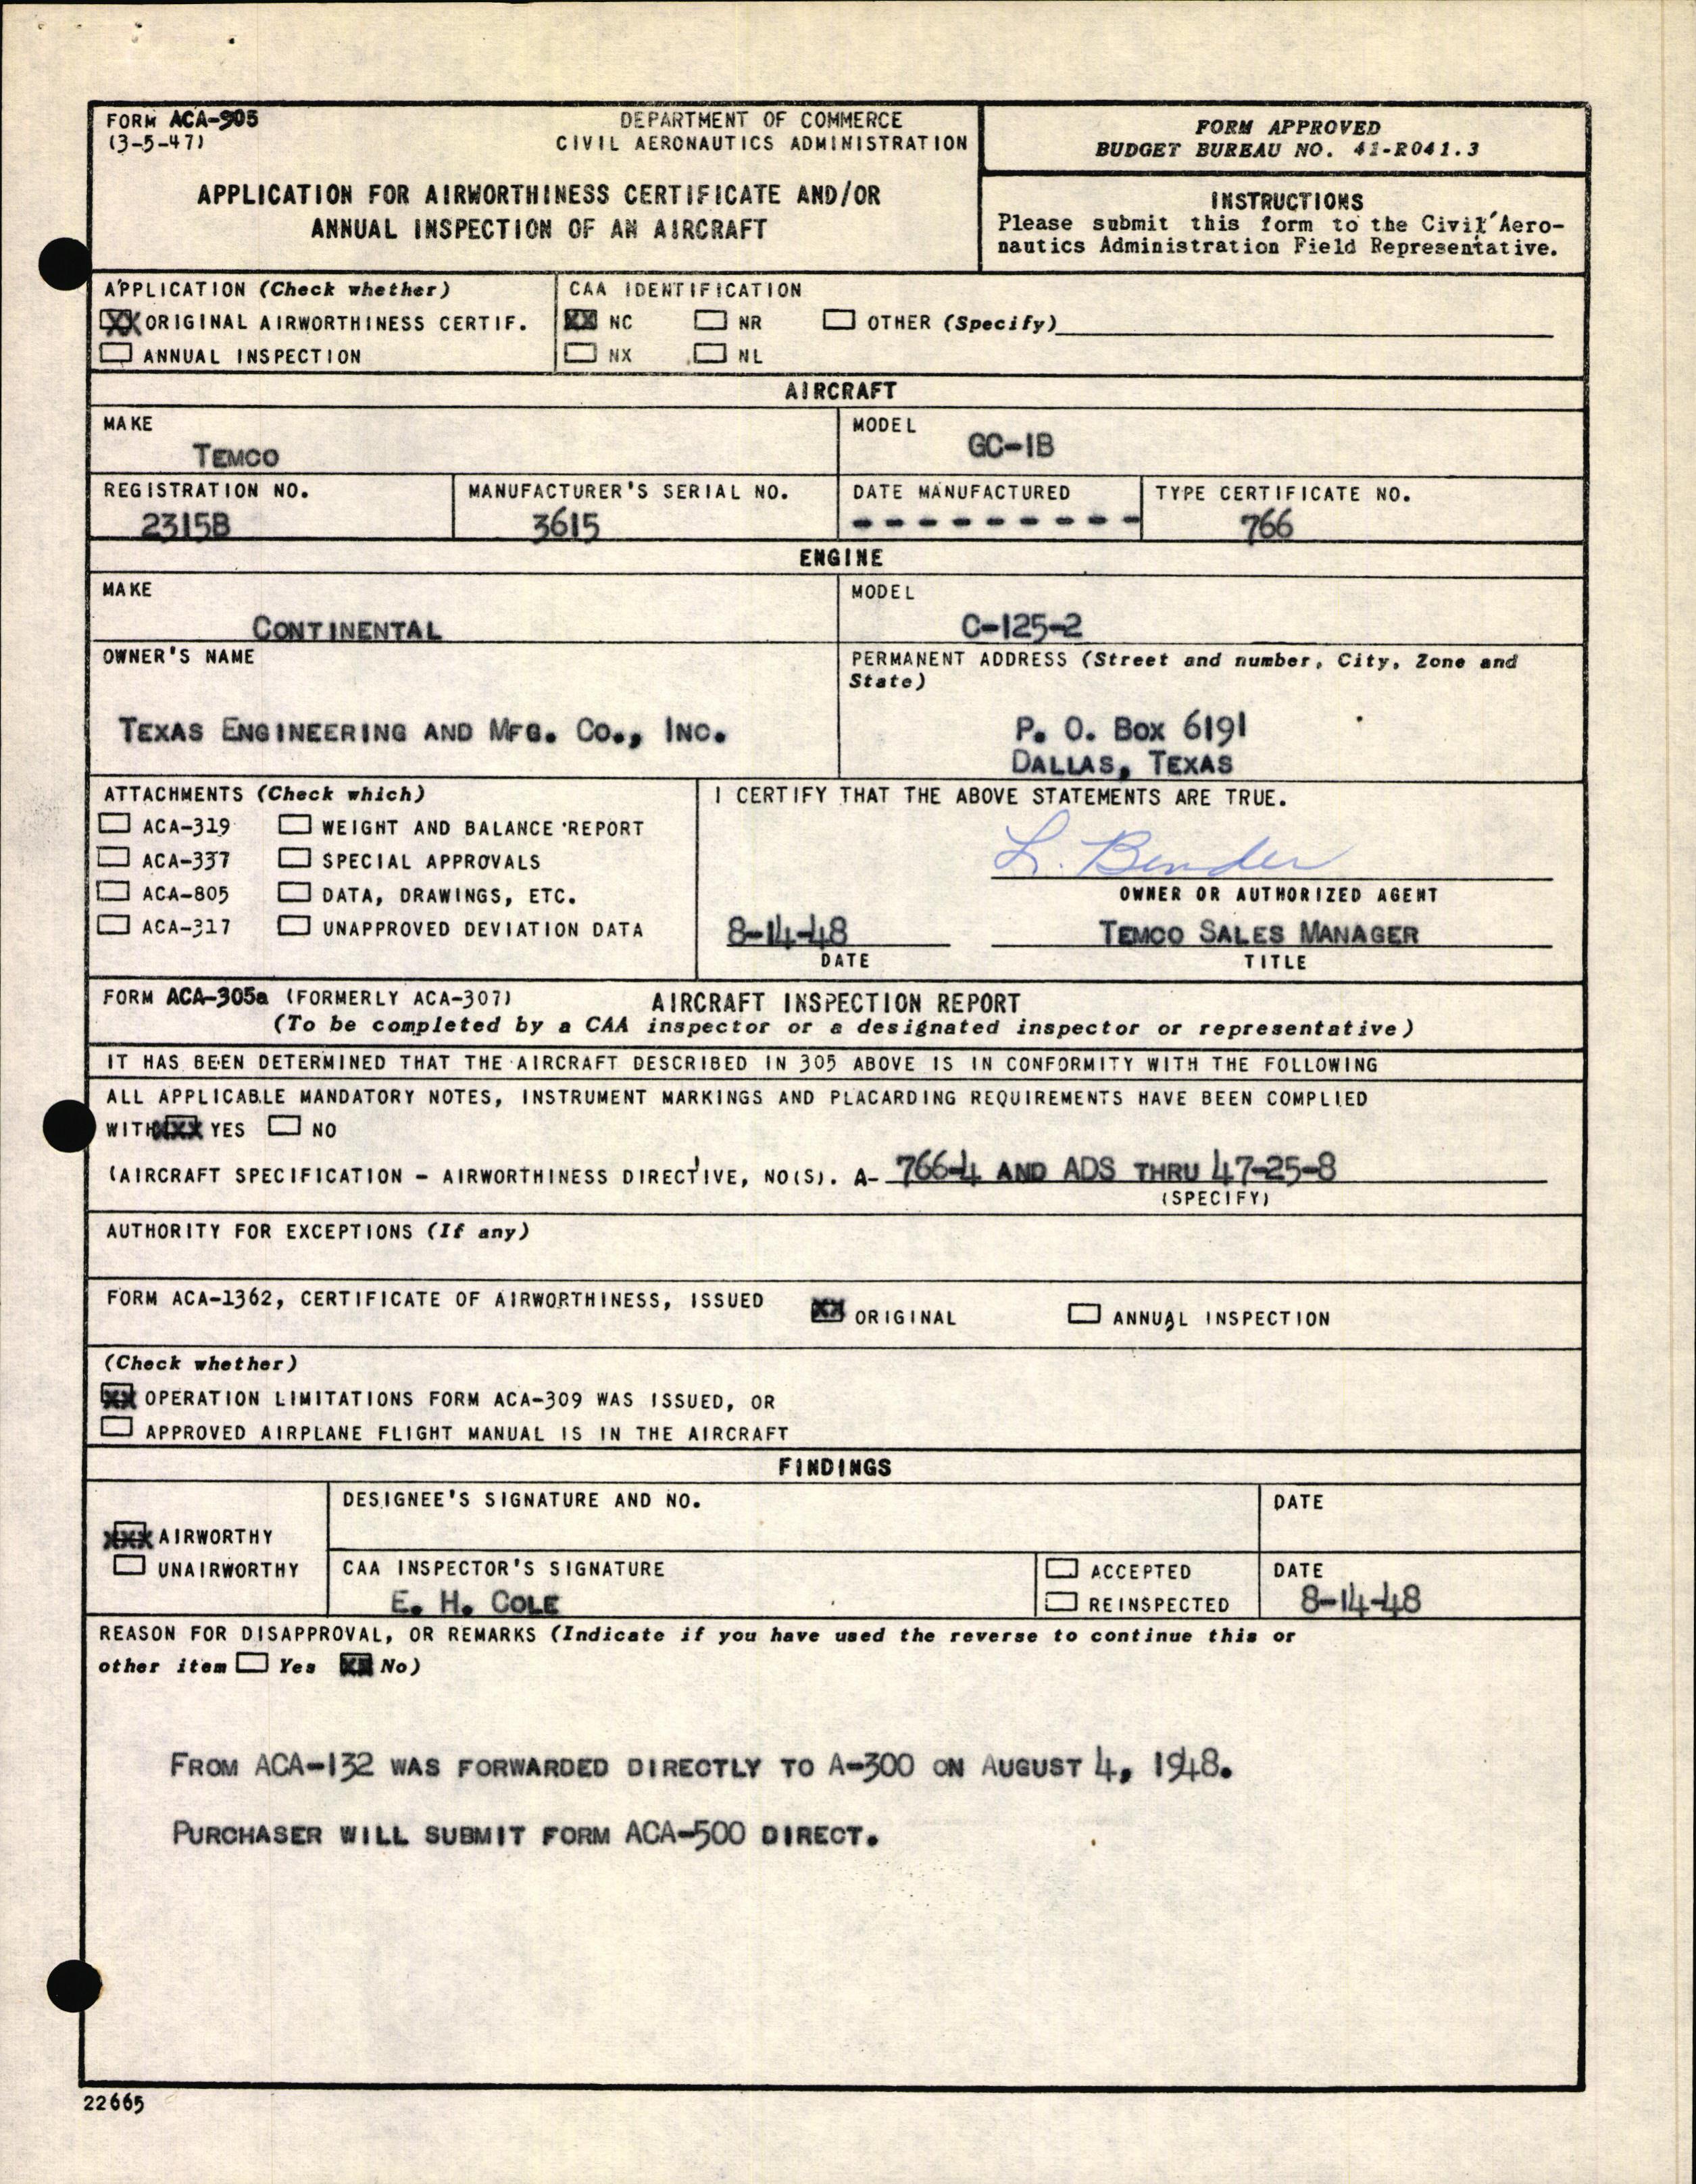 FORM ACA-905
(3-5-47)
DEPARTMENT OF COMMERCE
CIVIL AERONAUTICS ADMINISTRATION
APPLICATION FOR AIRWORTHINESS CERTIFICATE AND/OR
ANNUAL INSPECTION OF AN AIRCRAFT
FORM APPROVED
BUDGET BUREAU NO. 41-R041.3
INSTRUCTIONS
Please submit this form to the Civil Aero-
nautics Administration Field Representative.
APPLICATION (Check whether)
XX ORIGINAL AIRWORTHINESS CERTIF.
ANNUAL INSPECTION
CAA IDENTIFICATION
XX NC NR OTHER (Specify)
NX NL
AIRCRAFT
MAKE
TEMCO
MODEL
GC-1B
REGISTRATION NO.
2315B
MANUFACTURER'S SERIAL NO.
3615
DATE MANUFACTURED
- - - - - - - - -
TYPE CERTIFICATE NO.
766
ENGINE
MAKE
CONTINENTAL
MODEL
C-125-2
OWNER'S NAME
TEXAS ENGINEERING AND MFG. CO., INC.
PERMANENT ADDRESS (Street and number, City, Zone and
State)
P. O. BOX 6191
DALLAS, TEXAS
ATTACHMENTS (Check which)
ACA-319 WEIGHT AND BALANCE REPORT
ACA-337 SPECIAL APPROVALS
ACA-805 DATA, DRAWINGS, ETC.
ACA-317 UNAPPROVED DEVIATION DATA
I CERTIFY THAT THE ABOVE STATEMENTS ARE TRUE.
L. Bender
OWNER OR AUTHORIZED AGENT
8-14-48
DATE
TEMCO SALES MANAGER
TITLE
FORM ACA-305a (FORMERLY ACA-307) AIRCRAFT INSPECTION REPORT
(To be completed by a CAA inspector or a designated inspector or representative)
IT HAS BEEN DETERMINED THAT THE AIRCRAFT DESCRIBED IN 305 ABOVE IS IN CONFORMITY WITH THE FOLLOWING
ALL APPLICABLE MANDATORY NOTES, INSTRUMENT MARKINGS AND PLACARDING REQUIREMENTS HAVE BEEN COMPLIED
WITH XXX YES NO
(AIRCRAFT SPECIFICATION - AIRWORTHINESS DIRECTIVE, NO(S). A- 766-4 AND ADS THRU 47-25-8
(SPECIFY)
AUTHORITY FOR EXCEPTIONS (If any)
FORM ACA-1362, CERTIFICATE OF AIRWORTHINESS, ISSUED XX ORIGINAL ANNUAL INSPECTION
(Check whether)
XX OPERATION LIMITATIONS FORM ACA-309 WAS ISSUED, OR
APPROVED AIRPLANE FLIGHT MANUAL IS IN THE AIRCRAFT
FINDINGS
XXX AIRWORTHY
UNAIRWORTHY
DESIGNEE'S SIGNATURE AND NO.
DATE
CAA INSPECTOR'S SIGNATURE
E. H. COLE
ACCEPTED
REINSPECTED
DATE
8-14-48
REASON FOR DISAPPROVAL, OR REMARKS (Indicate if you have used the reverse to continue this or
other item Yes XX No)
FROM ACA-132 WAS FORWARDED DIRECTLY TO A-300 ON AUGUST 4, 1948.
PURCHASER WILL SUBMIT FORM ACA-500 DIRECT.
22665